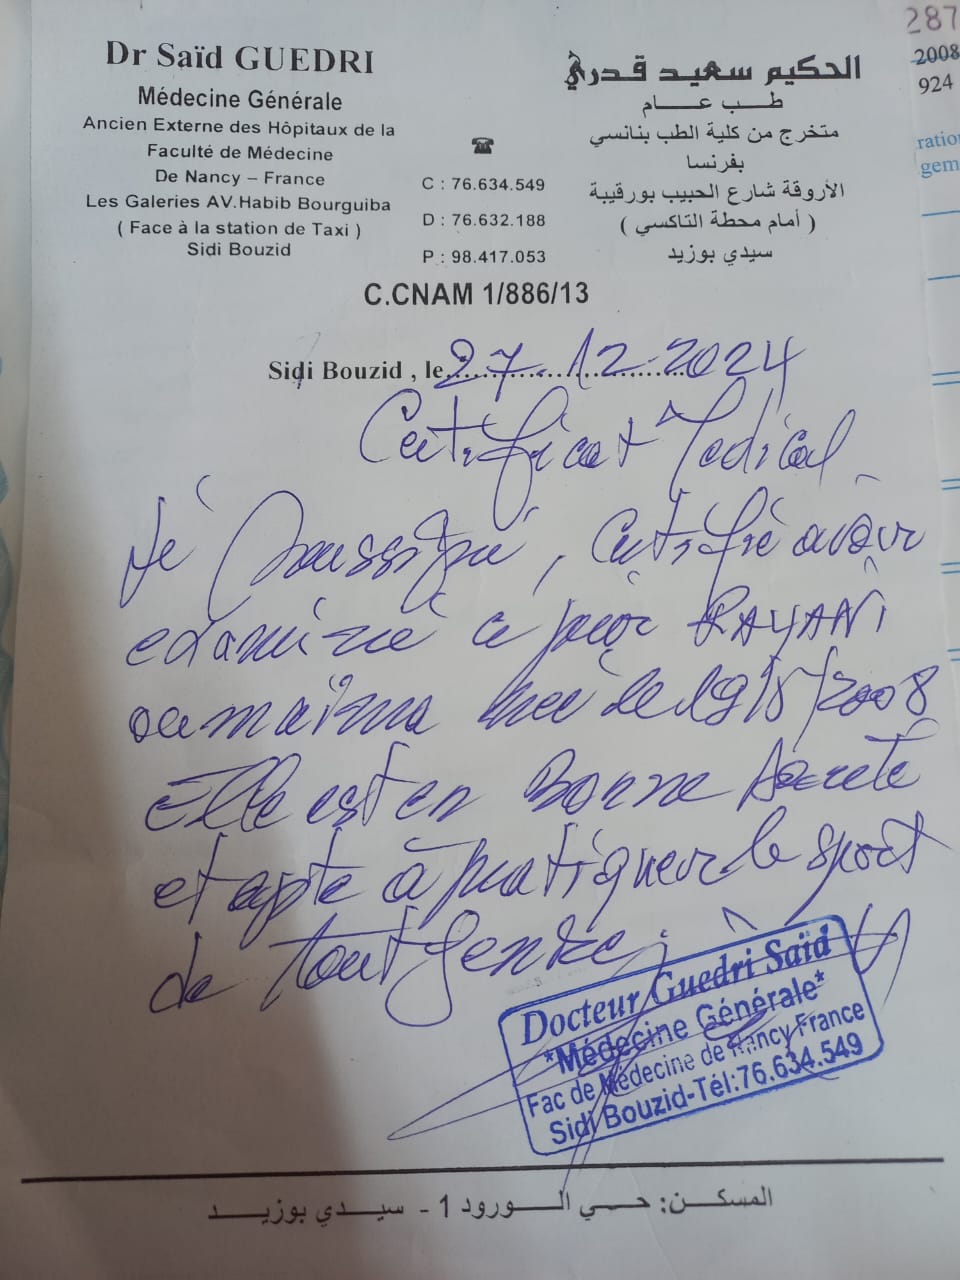 287
2008
924
ratio
gem
Dr Saïd GUEDRI
Médecine Générale
Ancien Externe des Hôpitaux de la
Faculté de Médecine
De Nancy – France
Les Galeries AV.Habib Bourguiba
( Face à la station de Taxi )
Sidi Bouzid
☎
C : 76.634.549
D : 76.632.188
P : 98.417.053
الحكيم سعيد قدري
طب عام
متخرج من كلية الطب بنانسي
بفرنسا
الأروقة شارع الحبيب بورقيبة
( أمام محطة التاكسي )
سيدي بوزيد
C.CNAM 1/886/13
Sidi Bouzid , le 27.12.2024
Certificat Medical
Je Soussigné, Certifié avoir
examiné ce jour RAYANI
née le 19/5/2008
Elle est en Bonne Santé
et apte à pratiquer le sport
de tout genre.
Docteur Guedri Saïd
*Médecine Générale*
Fac de Médecine de Nancy France
Sidi Bouzid-Tél:76.634.549
المسكن: حي الورود 1 - سيدي بوزيد